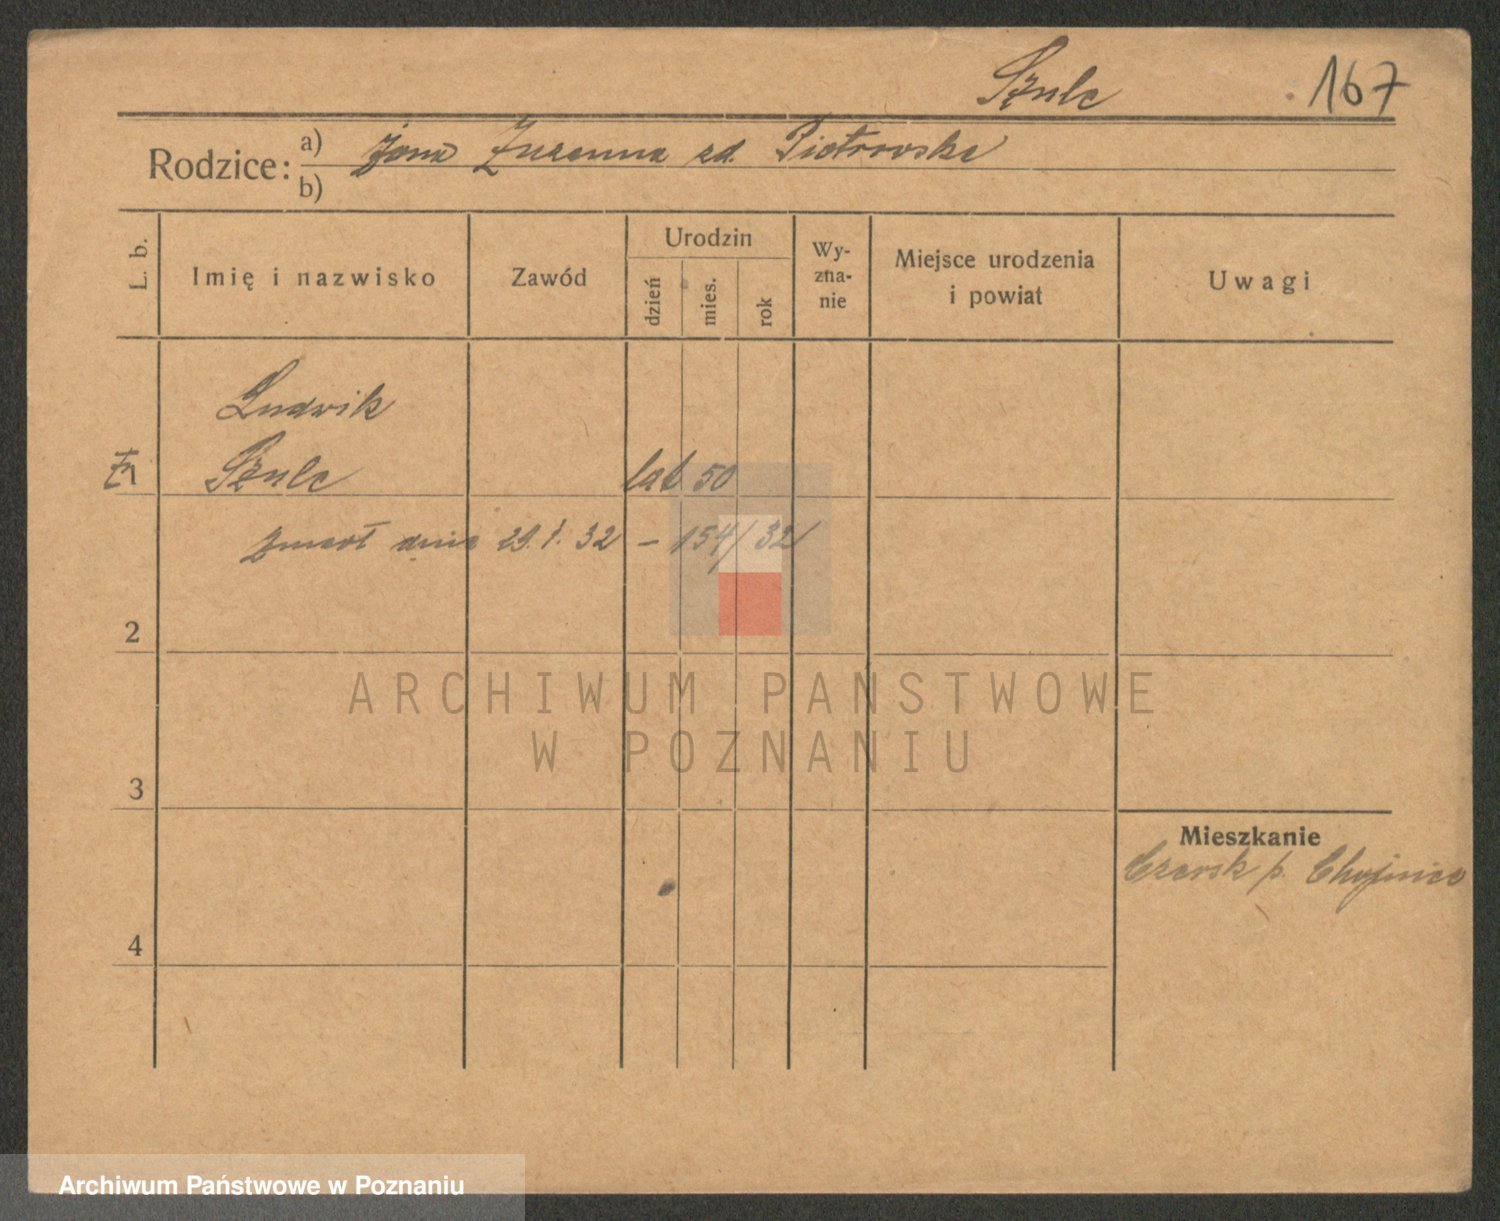 Szulc
167
Rodzice:
a) Jana Zuzanna zd. Piotrowska
b)
L. b.
Imię i nazwisko
Zawód
Urodzin
dzień
mies.
rok
Wy-
zna-
nie
Miejsce urodzenia
i powiat
Uwagi
Ludwik
Szulc lat 50
zmarł dnia 29.1.32 – 154/32
2
3
4
ARCHIWUM PAŃSTWOWE
W POZNANIU
Mieszkanie
Czersk p. Chojnice
Archiwum Państwowe w Poznaniu